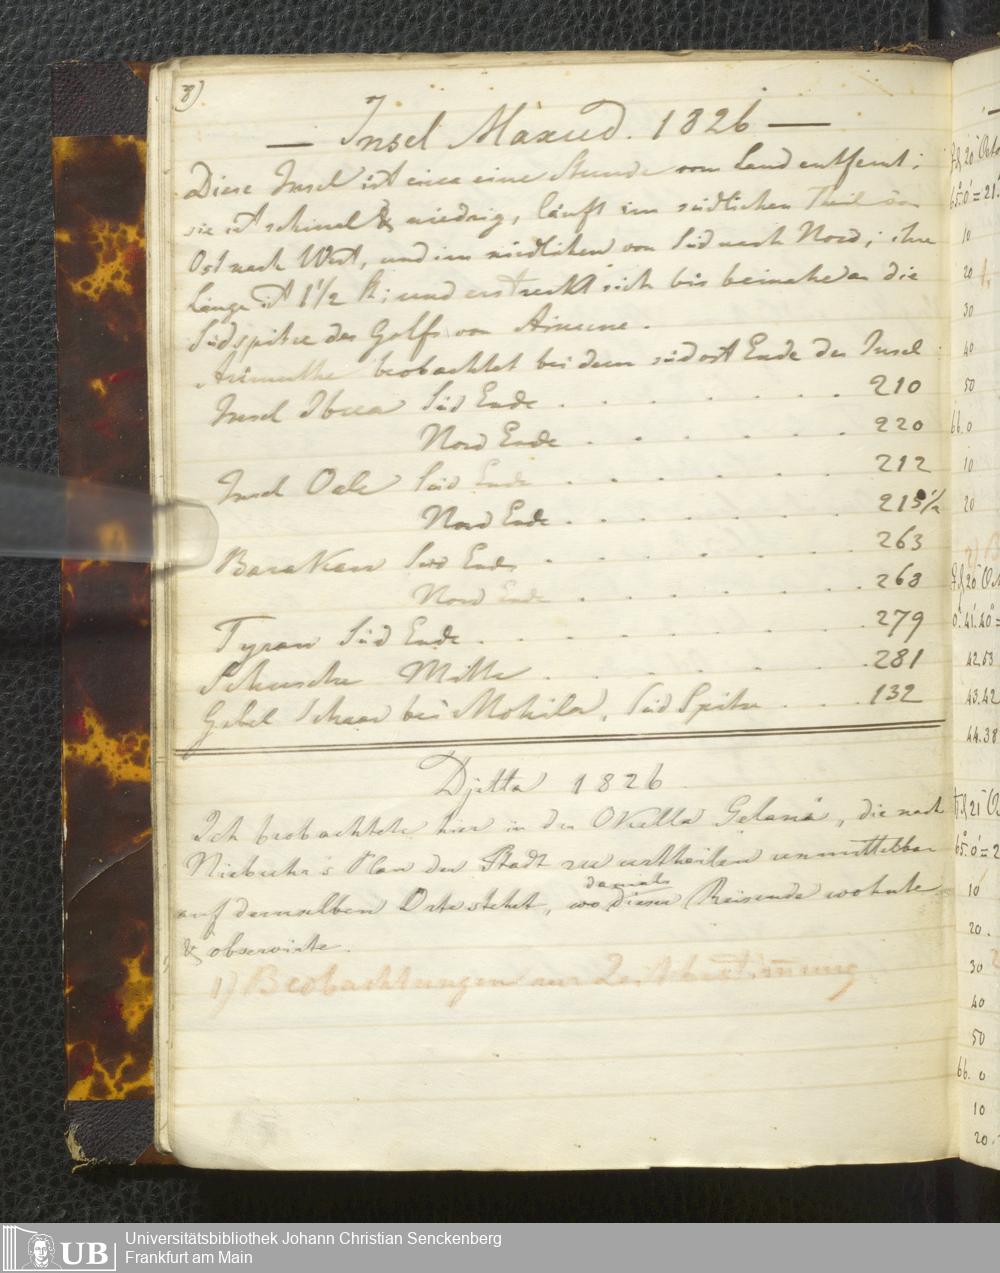 8)
— Insel Maxud. 1826 —
Diese Insel ist circa eine Stunde vom Land entfernt;
sie ist schmal & niedrig, läuft im südlichen Theil von
Ost nach West, und im nördlichen von Süd nach Nord; ihre
Länge ist 1 1/2 St; und erstreckt sich bis beinahe an die
Südspitze des Golfs von Ainune.
Azimuthe beobachtet bei dem südost Ende der Insel
Insel Ibua Süd Ende . . . . . . . . 210
Nord Ende . . . . . . . 220
Insel Süd Ende . . . . . . . 212
Nord Ende . . . . . . . 215 1/2
Barakan Sud Ende . . . . . . 263
Nord Ende . . . . . . . 268
Tyran Süd Ende . . . . . . . . 279
Schusche Mitte . . . . . . . 281
Gebel Schaar bei Mohila, Süd Spitze . . . . 132
Djetta 1826
Ich beobachtete hier in der Okella Gelani, die nach
Niebuhr's Plan der Stadt zu urtheilen unmittelbar
auf demselben Orte stehet, wo damals dieser Reisende wohnte
& observirte.
1) Beobachtungen zur Zeitbestimung
♀ d 20 Octo
65°.0' = 21.
10
20
30
40
50
66.0
10
20
♀ d 20 Oct
0.41'.40" =
42.53
43.42
44.38
♄ d 21 Oc
65°.0' = 2
10
20.
30
40
50
66. 0
10
20.
UB
Universitätsbibliothek Johann Christian Senckenberg
Frankfurt am Main